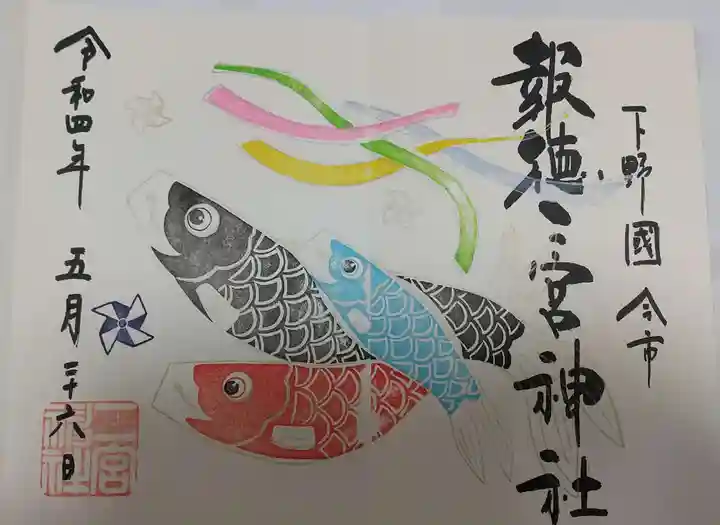 下野國 今市
報徳二宮神社
令和四年 五月二十六日
二宮神社